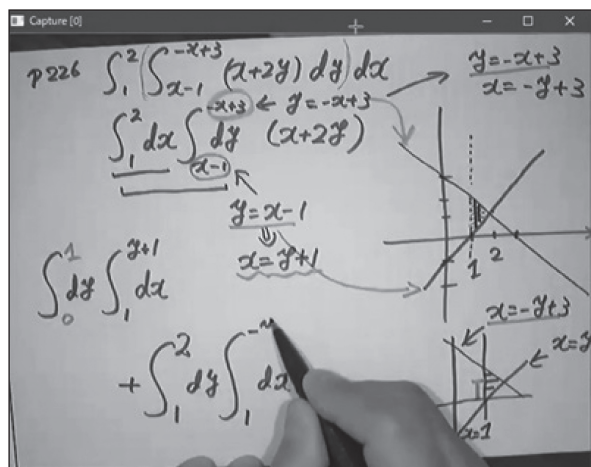 Capture [0]
p226 ∫₁² (∫_{x-1}^{-x+3} (x+2y) dy) dx
y=-x+3
x=-y+3
∫₁² dx ∫_{x-1}^{-x+3} dy (x+2y)
← y=-x+3
y=x-1
⇓
x=y+1
1 2
∫₀¹ dy ∫₁^{y+1} dx
x=-y+3
x=y
+ ∫₁² dy ∫₁^{-y} dx
x=1